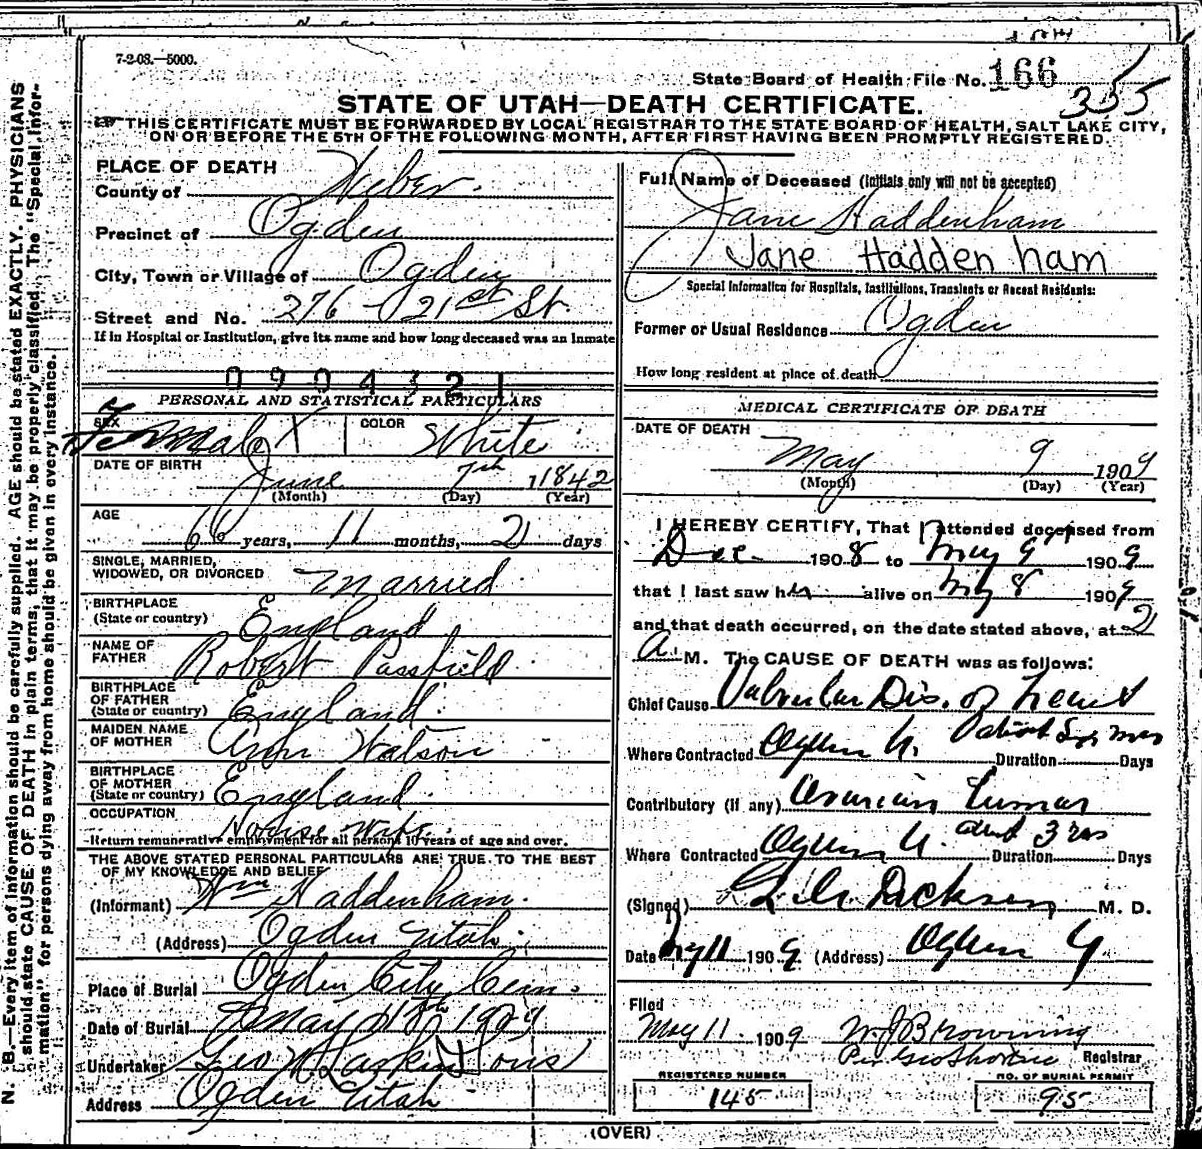 7-2-08.—5000.
State Board of Health File No. 166
355
STATE OF UTAH—DEATH CERTIFICATE.
THIS CERTIFICATE MUST BE FORWARDED BY LOCAL REGISTRAR TO THE STATE BOARD OF HEALTH, SALT LAKE CITY,
ON OR BEFORE THE 5TH OF THE FOLLOWING MONTH, AFTER FIRST HAVING BEEN PROMPTLY REGISTERED.
N. B.—Every item of information should be carefully supplied. AGE should be stated EXACTLY. PHYSICIANS
should state CAUSE OF DEATH in plain terms, that it may be properly classified. The "Special Infor-
mation" for persons dying away from home should be given in every instance.
PLACE OF DEATH
County of Weber
Precinct of Ogden
City, Town or Village of Ogden
Street and No. 276 - 21st St.
If in Hospital or Institution, give its name and how long deceased was an inmate
0904321
PERSONAL AND STATISTICAL PARTICULARS
SEX Female X COLOR White
DATE OF BIRTH June 7th 1842
(Month) (Day) (Year)
AGE
66 years, 11 months, 2 days
SINGLE, MARRIED,
WIDOWED, OR DIVORCED Married
BIRTHPLACE
(State or country) England
NAME OF
FATHER Robert Passfield
BIRTHPLACE
OF FATHER
(State or country) England
MAIDEN NAME
OF MOTHER Ann Watson
BIRTHPLACE
OF MOTHER
(State or country) England
OCCUPATION House
Return remunerative employment for all persons 10 years of age and over.
THE ABOVE STATED PERSONAL PARTICULARS ARE TRUE TO THE BEST
OF MY KNOWLEDGE AND BELIEF
(Informant) Wm Haddenham
(Address) Ogden Utah
Place of Burial Ogden City Cem.
Date of Burial May 11th 1909
Undertaker Geo W Larkin & Sons
Address Ogden Utah
Full Name of Deceased (Initials only will not be accepted)
Jane Haddenham
Jane Haddenham
Special Information for Hospitals, Institutions, Transients or Recent Residents:
Former or Usual Residence Ogden
How long resident at place of death
MEDICAL CERTIFICATE OF DEATH
DATE OF DEATH
May 9 1909
(Month) (Day) (Year)
I HEREBY CERTIFY, That I attended deceased from
Dec 1908 to May 9 1909
that I last saw her alive on May 8 1909
and that death occurred, on the date stated above, at 2
A. M. The CAUSE OF DEATH was as follows:
Chief Cause Valvular Dis. of heart
Where Contracted Ogden U. Duration Days
Contributory (if any) Ovarian Tumor
Where Contracted Ogden U. about 3 yrs Duration Days
(Signed) Dickson M. D.
Date May 11 1909 (Address) Ogden
Filed
May 11 1909 W J Browning
Per Registrar
REGISTERED NUMBER
145
NO. OF BURIAL PERMIT
95
(OVER)